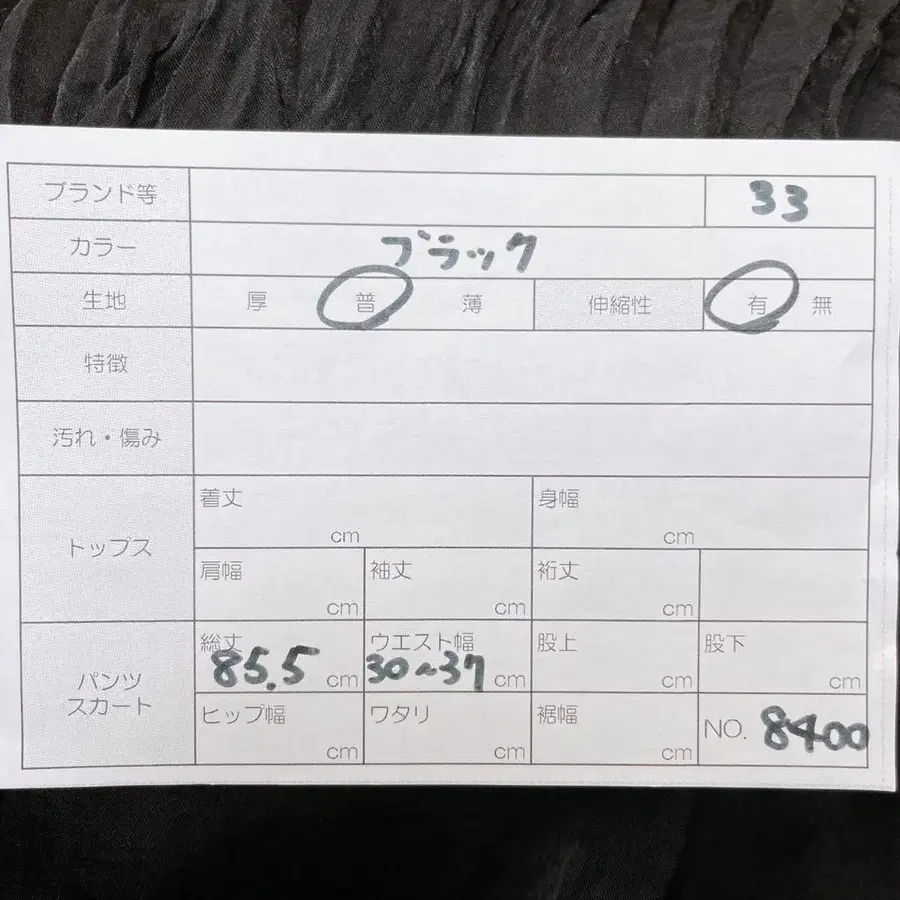 ブランド等 33
カラー ブラック
生地 厚 普 薄 伸縮性 有 無
特徴
汚れ・傷み
トップス
着丈 cm 身幅 cm
肩幅 cm 袖丈 cm 裄丈 cm
パンツ
スカート
総丈 85.5 cm ウエスト幅 30~37 cm 股上 cm 股下 cm
ヒップ幅 cm ワタリ cm 裾幅 cm NO. 8400